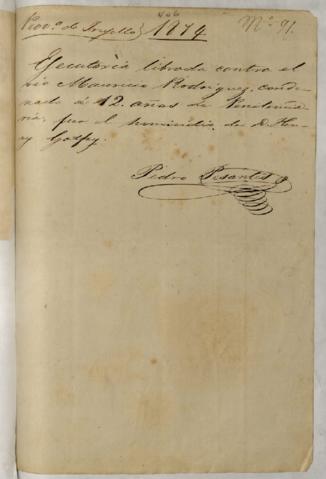 406
Prov.ª de Trujillo} 1874. Nº 91.
Ejecutoria librada contra el
reo Mauricio Rodriguez, conde-
nado á 12. años de Penitencia-
ria, por el homicidio de D. Hen-
ry Gotfry.
Pedro Pesantes